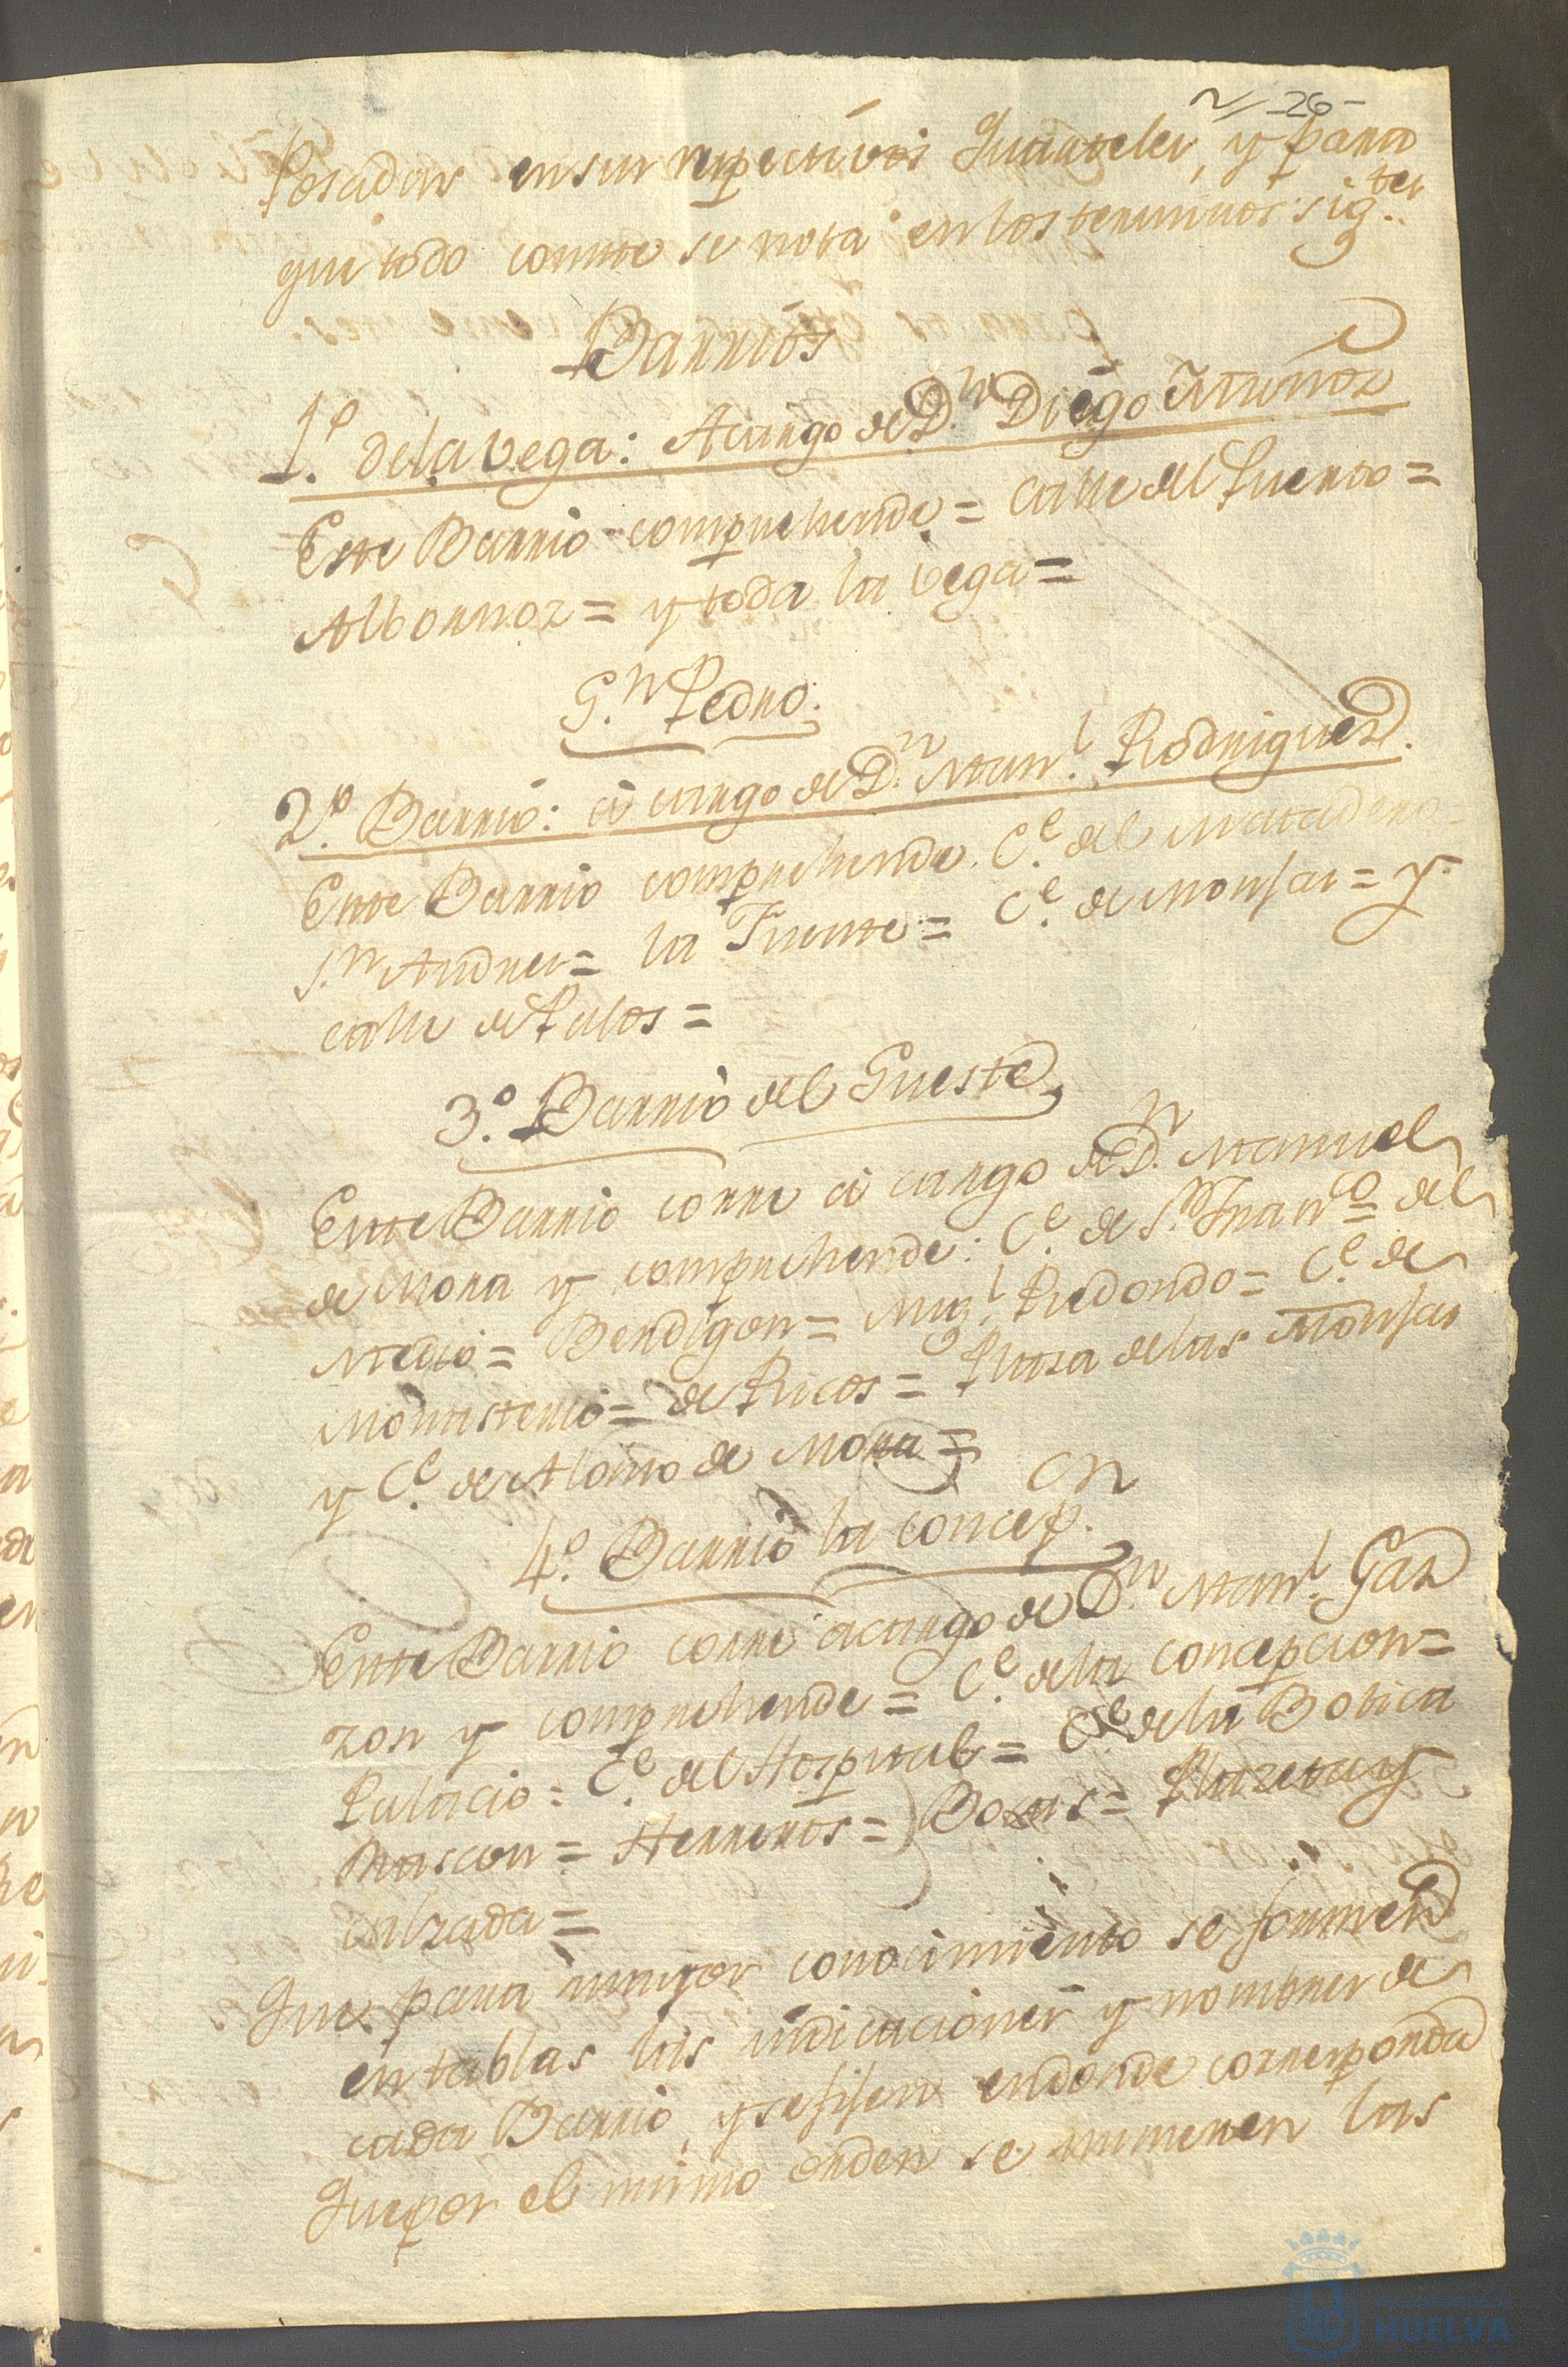 26
Posadas en sus respectivos Quarteles, y para
que todo conste se nota en los terminos sig.tes
Barrios
1.º de la vega: A cargo de D.n Diego Muñoz
Este Barrio comprehende = calle del Puerto =
Albornoz = y toda la vega =
S.n Pedro.
2.º Barrio: à cargo de D.n Man.l Rodriguez.
Este Barrio comprehende C.e del Matadero
S.n Andres = la Fuente = C.e de Monjas = y
calle de Palos =
3.º Barrio del Gueste
Este Barrio corre à cargo de D.n Manuel
de Mora y comprehende: C.e de S.n Fran.co = del
Medio = Berdigon = Mig.l Redondo = C.e de
Monasterio = de Ricos = Plaza de las Monjas
y C.e de Alonso de Mora =
4.º Barrio la concep.cn
Este Barrio corre a cargo de D.n Man.l Gar
zon y comprehende = C.e de la concepcion =
Palacio = C.e del Hospital = C.e de la Botica
Rascon = Herreros = Bocas = Plazeta y
calzada =
Que para mayor conocimiento se formen
en tablas las indicaciones y nombres de
cada Barrio, y se fijen en donde corresponda
Que por el mismo orden se numeren las
HUELVA